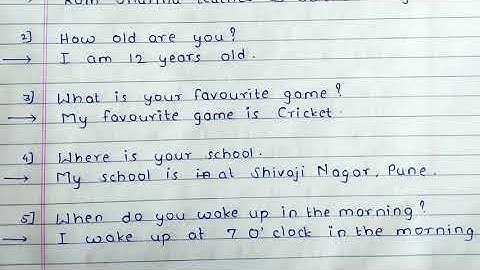 2] How old are you?
→ I am 12 years old.
3] What is your favourite game?
→ My favourite game is Cricket.
4] Where is your school.
→ My school is in at Shivaji Nagar, Pune.
5] When do you wake up in the morning?
→ I wake up at 7 O'clock in the morning